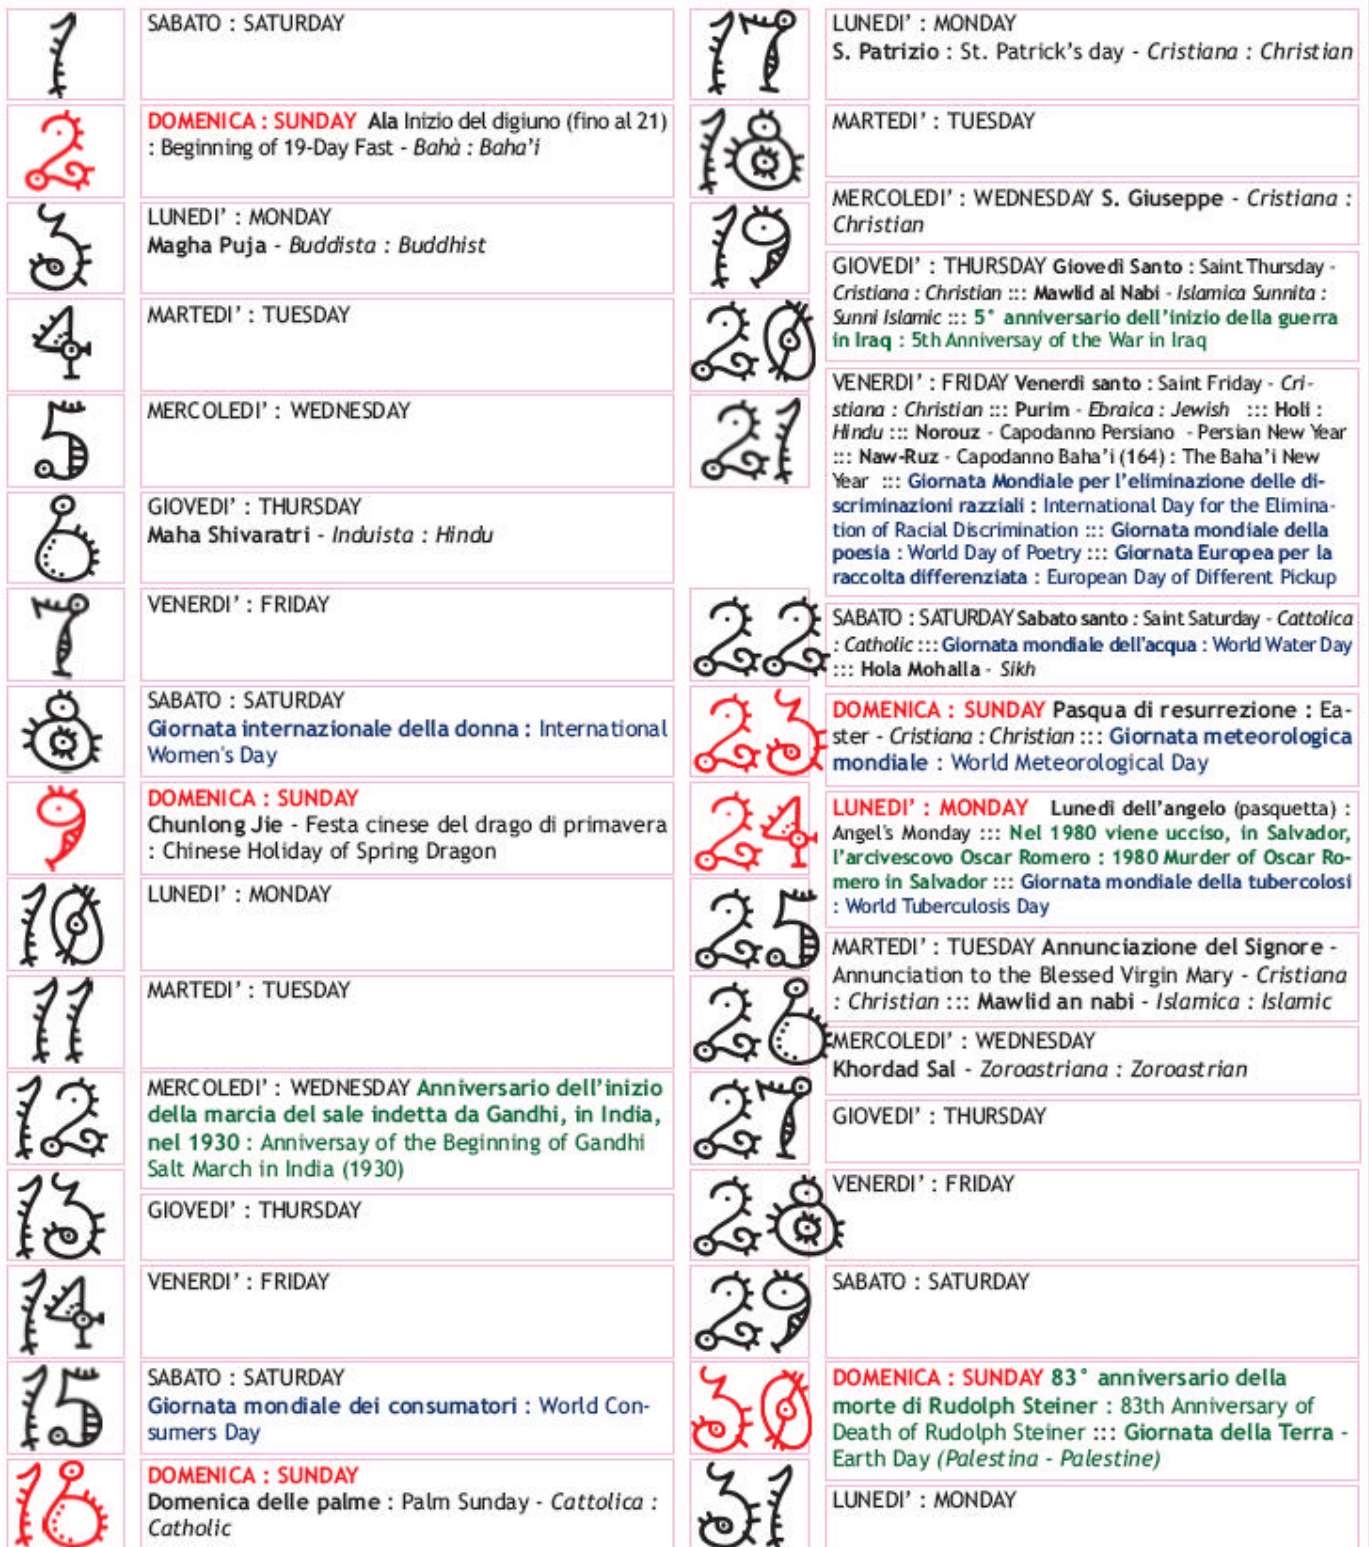 1
SABATO : SATURDAY
2
DOMENICA : SUNDAY Ala Inizio del digiuno (fino al 21)
: Beginning of 19-Day Fast - Bahà : Baha'i
3
LUNEDI' : MONDAY
Magha Puja - Buddista : Buddhist
4
MARTEDI' : TUESDAY
5
MERCOLEDI' : WEDNESDAY
6
GIOVEDI' : THURSDAY
Maha Shivaratri - Induista : Hindu
7
VENERDI' : FRIDAY
8
SABATO : SATURDAY
Giornata internazionale della donna : International
Women's Day
9
DOMENICA : SUNDAY
Chunlong Jie - Festa cinese del drago di primavera
: Chinese Holiday of Spring Dragon
10
LUNEDI' : MONDAY
11
MARTEDI' : TUESDAY
12
MERCOLEDI' : WEDNESDAY Anniversario dell'inizio
della marcia del sale indetta da Gandhi, in India,
nel 1930 : Anniversay of the Beginning of Gandhi
Salt March in India (1930)
13
GIOVEDI' : THURSDAY
14
VENERDI' : FRIDAY
15
SABATO : SATURDAY
Giornata mondiale dei consumatori : World Con-
sumers Day
16
DOMENICA : SUNDAY
Domenica delle palme : Palm Sunday - Cattolica :
Catholic
17
LUNEDI' : MONDAY
S. Patrizio : St. Patrick's day - Cristiana : Christian
18
MARTEDI' : TUESDAY
19
MERCOLEDI' : WEDNESDAY S. Giuseppe - Cristiana :
Christian
20
GIOVEDI' : THURSDAY Giovedì Santo : Saint Thursday -
Cristiana : Christian ::: Mawlid al Nabi - Islamica Sunnita :
Sunni Islamic ::: 5° anniversario dell'inizio della guerra
in Iraq : 5th Anniversay of the War in Iraq
21
VENERDI' : FRIDAY Venerdì santo : Saint Friday - Cri-
stiana : Christian ::: Purim - Ebraica : Jewish ::: Holi :
Hindu ::: Norouz - Capodanno Persiano - Persian New Year
::: Naw-Ruz - Capodanno Baha'i (164) : The Baha'i New
Year ::: Giornata Mondiale per l'eliminazione delle di-
scriminazioni razziali : International Day for the Elimina-
tion of Racial Discrimination ::: Giornata mondiale della
poesia : World Day of Poetry ::: Giornata Europea per la
raccolta differenziata : European Day of Different Pickup
22
SABATO : SATURDAY Sabato santo : Saint Saturday - Cattolica
: Catholic ::: Giornata mondiale dell'acqua : World Water Day
::: Hola Mohalla - Sikh
23
DOMENICA : SUNDAY Pasqua di resurrezione : Ea-
ster - Cristiana : Christian ::: Giornata meteorologica
mondiale : World Meteorological Day
24
LUNEDI' : MONDAY Lunedì dell'angelo (pasquetta) :
Angel's Monday ::: Nel 1980 viene ucciso, in Salvador,
l'arcivescovo Oscar Romero : 1980 Murder of Oscar Ro-
mero in Salvador ::: Giornata mondiale della tubercolosi
: World Tuberculosis Day
25
MARTEDI' : TUESDAY Annunciazione del Signore -
Annunciation to the Blessed Virgin Mary - Cristiana
: Christian ::: Mawlid an nabi - Islamica : Islamic
26
MERCOLEDI' : WEDNESDAY
Khordad Sal - Zoroastriana : Zoroastrian
27
GIOVEDI' : THURSDAY
28
VENERDI' : FRIDAY
29
SABATO : SATURDAY
30
DOMENICA : SUNDAY 83° anniversario della
morte di Rudolph Steiner : 83th Anniversary of
Death of Rudolph Steiner ::: Giornata della Terra -
Earth Day (Palestina - Palestine)
31
LUNEDI' : MONDAY